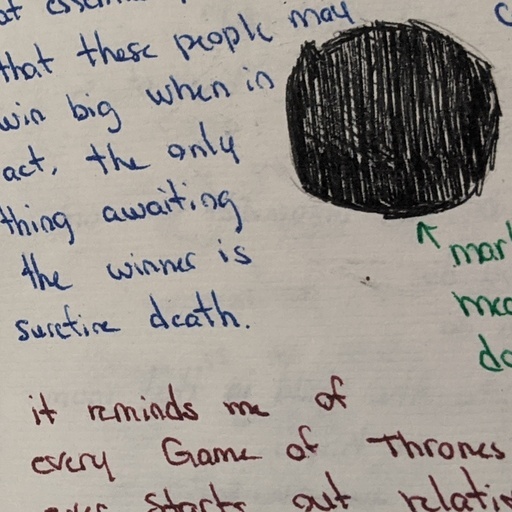 that these people may
win big when in
act, the only
thing awaiting
the winner is
surefire death.
mar
mea
do
it reminds me of
every Game of Thrones
starts out relati